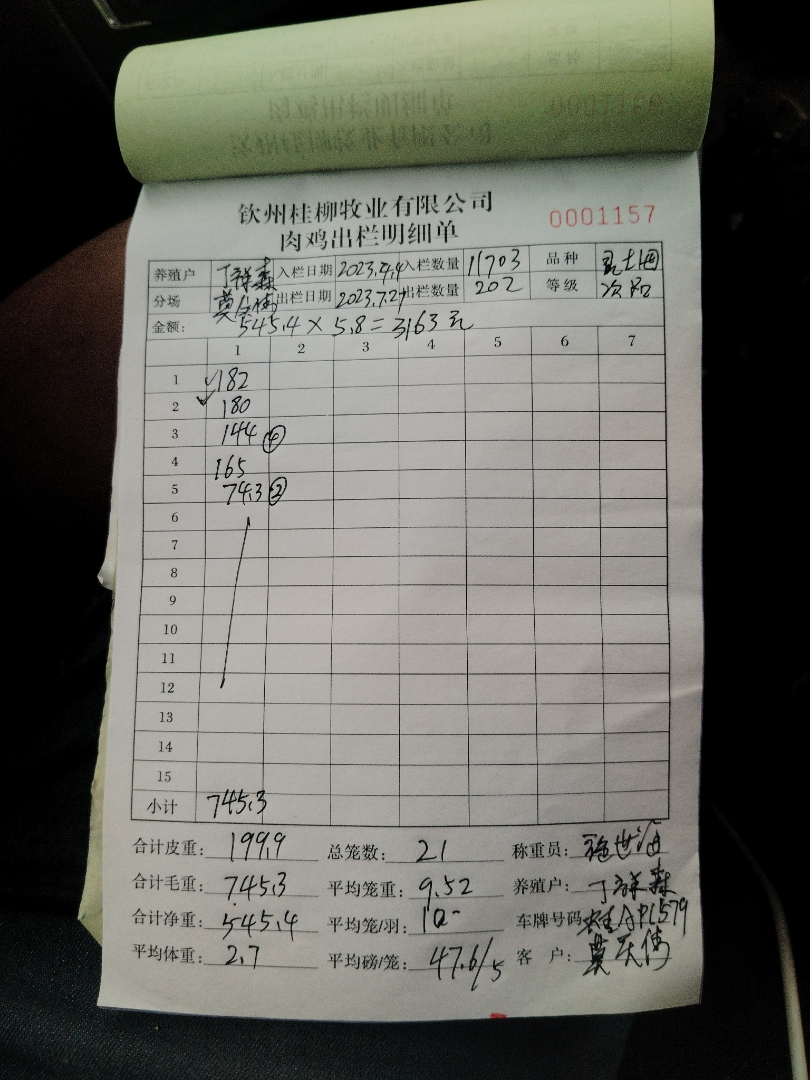 钦州桂柳牧业有限公司
肉鸡出栏明细单 0001157
养殖户 丁祥森 入栏日期 2023.4.4 入栏数量 11703 品种
分场 出栏日期 2023.7.27 出栏数量 202 等级
金额: 545.4 × 5.8 = 3163元
1 2 3 4 5 6 7
1 182
2 180
3 144 ④
4 165
5 74.3 ②
6
7
8
9
10
11
12
13
14
15
小计 745.3
合计皮重: 199.9 总笼数: 21 称重员:
合计毛重: 745.3 平均笼重: 9.52 养殖户: 丁祥森
合计净重: 545.4 平均笼/羽: 10- 车牌号码
平均体重: 2.7 平均磅/笼: 47.6/5 客 户: